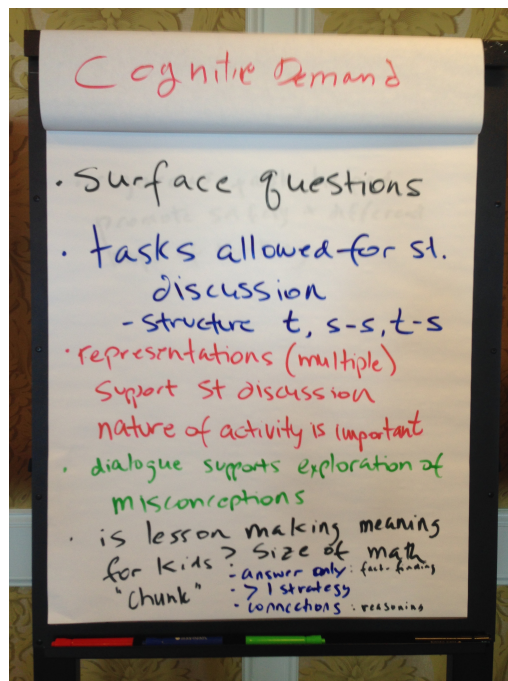 Cognitive Demand
· surface questions
· tasks allowed for st.
discussion
- structure t, s-s, t-s
· representations (multiple)
support st discussion
nature of activity is important
· dialogue supports exploration of
misconceptions
· is lesson making meaning
for kids? Size of math
"chunk"
- answer only: fact-finding
- > 1 strategy
- connections: reasoning